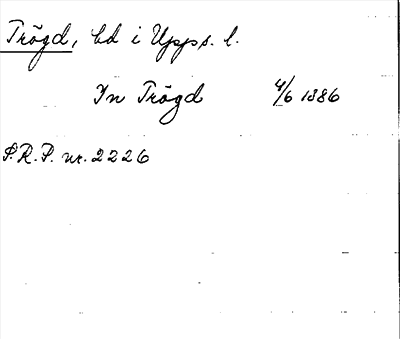 Trögd, hd i Upps. l.
In Trögd 4/6 1386
S.R.P. nr. 2226